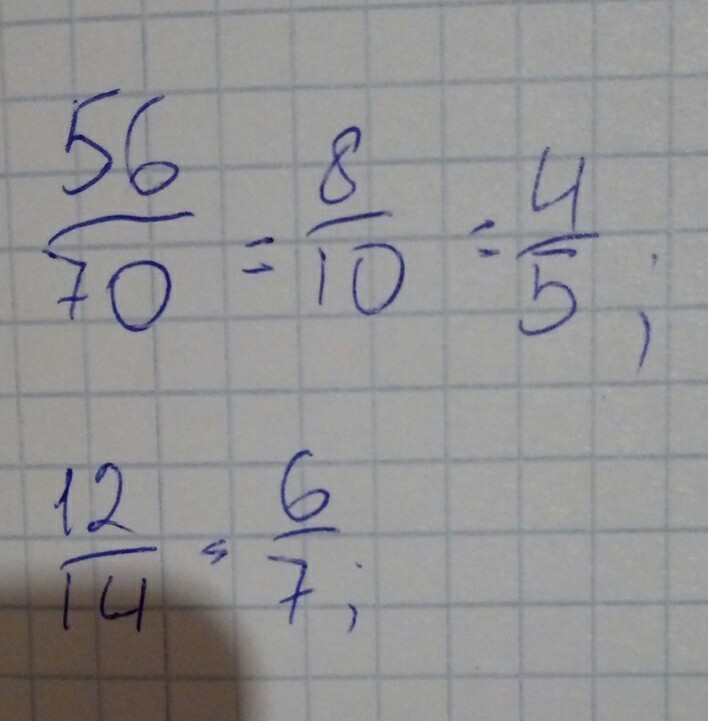 56/70 = 8/10 = 4/5;
12/14 = 6/7;